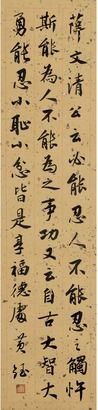 薛文清公云必能忍人不能忍之觸忤
斯能為人不能為之事功又云自古大智大
勇能忍小恥小忿皆是享福德處 黃鈺